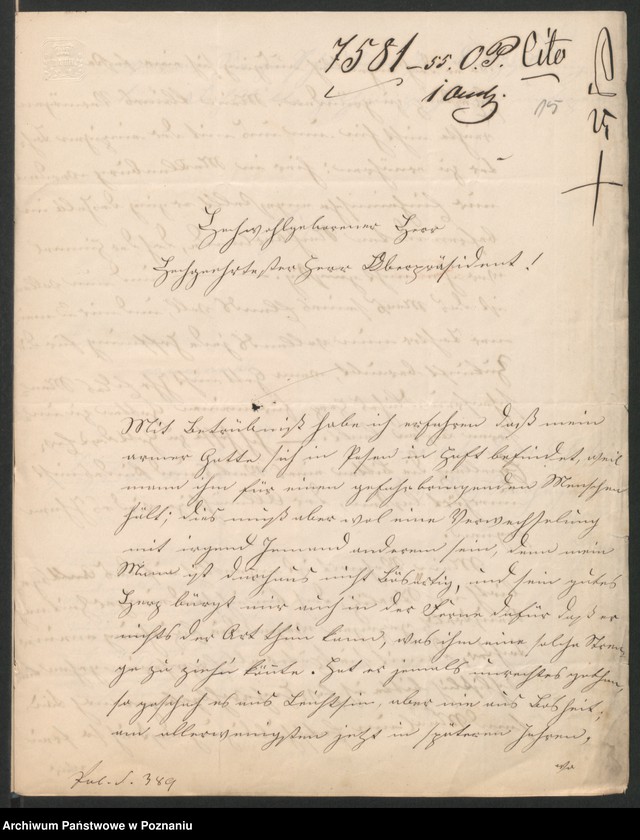 7581-55. O. P. Cito
15
Hochwohlgeborener Herr
Hochgeehrtester Herr Oberpräsident!
Mit Betrübniß habe ich erfahren daß mein
armer Gatte sich in Posen in Haft befindet, weil
mann ihn für einen gefahrbringenden Menschen
hält; dies muß aber wol eine Verwechselung
mit irgend Jemand anderem sein, denn mein
Mann ist durchaus nicht bösartig, und sein gutes
Herz bürgt mir auch in der Ferne dafür daß er
nichts der Art thun kann, was ihm eine solche Stren-
ge zu ziehn könnte. Hat er jemals unrechtes gethan,
so geschah es aus Leichtsin, aber nie aus Bosheit;
am allerwenigsten jetzt in späteren Jahren,
Pol. S. 389
Archiwum Państwowe w Poznaniu